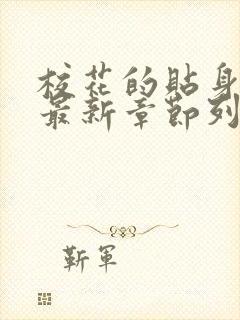 校花的貼身
最新章節列
靳軍